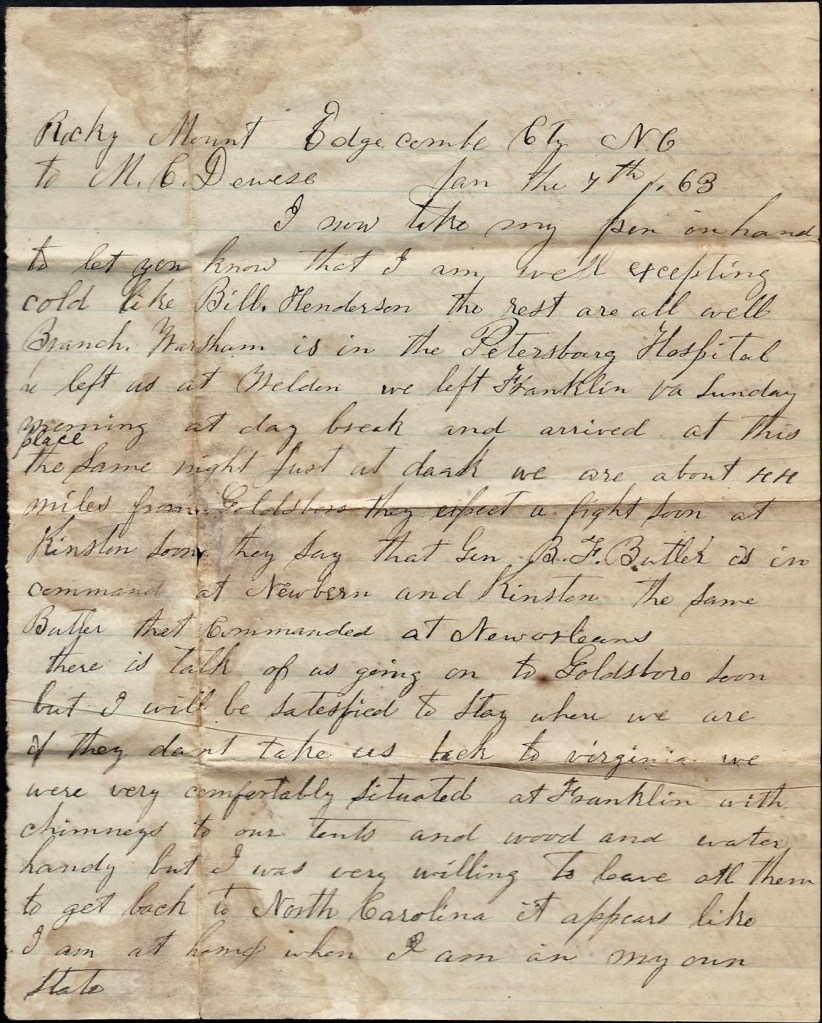 Rocky Mount Edgecombe Cty N.C
to M. C. Dewese Jan the 7th, 63
I now take my pen in hand
to let you know that I am well excepting
cold like Bill. Henderson the rest are all well
Branch. Warsham is in the Petersburg Hospital
left us at Weldon we left Franklin va Sunday
morning at day break and arrived at this
place
the same night just at daark we are about 44
miles from Goldsboro they expect a fight soon at
Kinston soon they say that Gen B. F. Butler is in
command at Newbern and Kinston the same
Butler that Commanded at Neworleans
there is talk of us going on to Goldsboro soon
but I will be satesfied to stay where we are
if they dont take us back to virginia we
were very comfortably situated at Franklin with
chimneys to our tents and wood and water
handy but I was very willing to leave all them
to get back to North Carolina it appears like
I am at home when I am in my own
state